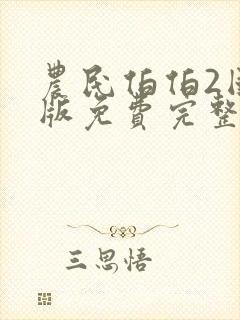 農民伯伯2國
版免費完整
三思悟